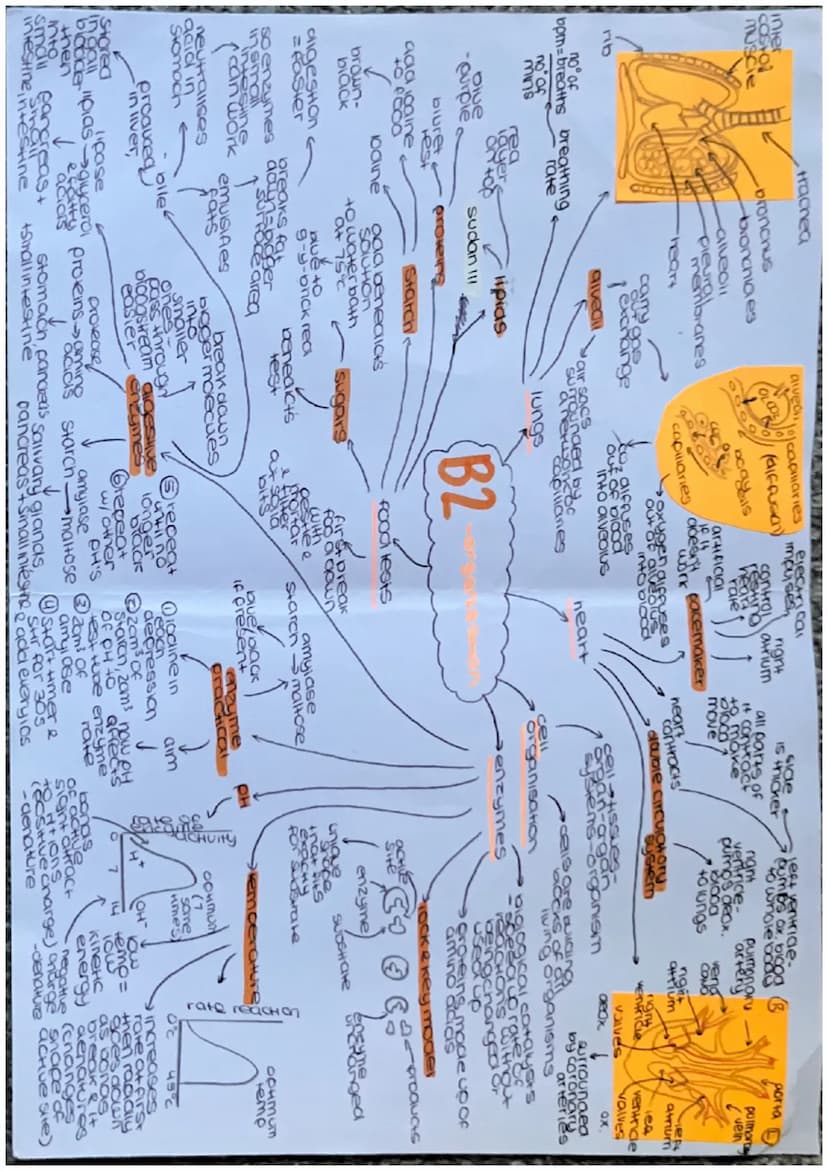 B2
-organisation
lungs
inter
costal
muscle
rib
trachea
bronchus
bronchioles
alveoli
pleural
membranes
heart
breathing
rate
bpm = breaths
no° of
mins
alveoli
carry
out gas
exchange
air sacs
surrounded by
a network of
capillaries
alveoli
capillaries
(diffusion)
oxygen
capillaries
co2 diffuses
out of blood
into alveolus
oxygen diffuses
out of alveolus
into blood
heart
pacemaker
electrical
impulses
control
resting
heart
rate
right
atrium
artificial
if it
doesn't
work
heart
contracts
all parts of
it contract
to make
blood
move
double circulatory
system
left ventricle-
pumps ox. blood
to whole body
side
is thicker
right
ventricle-
pumps deox.
blood
to lungs
pulmonary
artery
vena
cava
right
atrium
right
ventricle
valves
deox.
aorta
pulmonary
vein
left
atrium
left
ventricle
valves
ox.
surrounded
by coronary
arteries
cell
organisation
cell → tissues →
organ → organ
systems → organism
cells are building
blocks of all
living organisms
enzymes
biological catalysts
-speed up rate of
reactions without
being changed or
used up
proteins, made up of
amino acids
lock & key model
active
site
enzyme
substrate
products
enzyme
unchanged
unique
shape
that fits
exactly
for substrate
temperature
rate reaction
0°c
45°c
optimum
temp
increases
rate at first
then rapidly
goes down
as bonds
break & it
denatures
(changes
shape of
active site)
low
temp =
low
kinetic
energy
pH
enzyme
activity
0
7
14
H+
OH-
optimum
(7
some
times)
bonds
of active
site attract
to H+ ions
(positive charge)
-denature
negative
charge
-denature
enzyme
practical
amylase
starch → maltose
blue/black
if present
aim
how pH
affects
enzyme
rate
① iodine in
each
depression
② 2cm³ of
starch, 2cm³
of pH to
test tube
③ 2cm³ of
amylase
④ start timer &
stir for 30s
& add every 10s
⑤ repeat
until no
longer
black
⑥ repeat
w/ other
pH's
food tests
first break
food down
with
pestle &
mortar
& filter
out solid
bits
sugars
benedicts
test
add benedicts
solution
to water bath
at 75°c
blue to
g-y-brick red
starch
iodine
add iodine
to food
brown-
black
proteins
biuret
test
blue
-purple
lipids
sudan III
red
layer
on top
digestive
enzymes
break down
bigger molecules
into
smaller
ones-
pass through
bloodstream
easier
amylase
starch → maltose
salivary glands
pancreas + small intestine
protease
proteins → amino
acids
stomach, pancreas
+ small intestine
lipase
lipids → glycerol
& fatty
acids
pancreas +
small
intestine
bile
produced
in liver,
stored
in gall
bladder
then
into
small
intestine
neutralises
acid in
stomach
so enzymes
in small
intestine
can work
emulsifies
fats
breaks fat
down = bigger
surface area
digestion
= easier